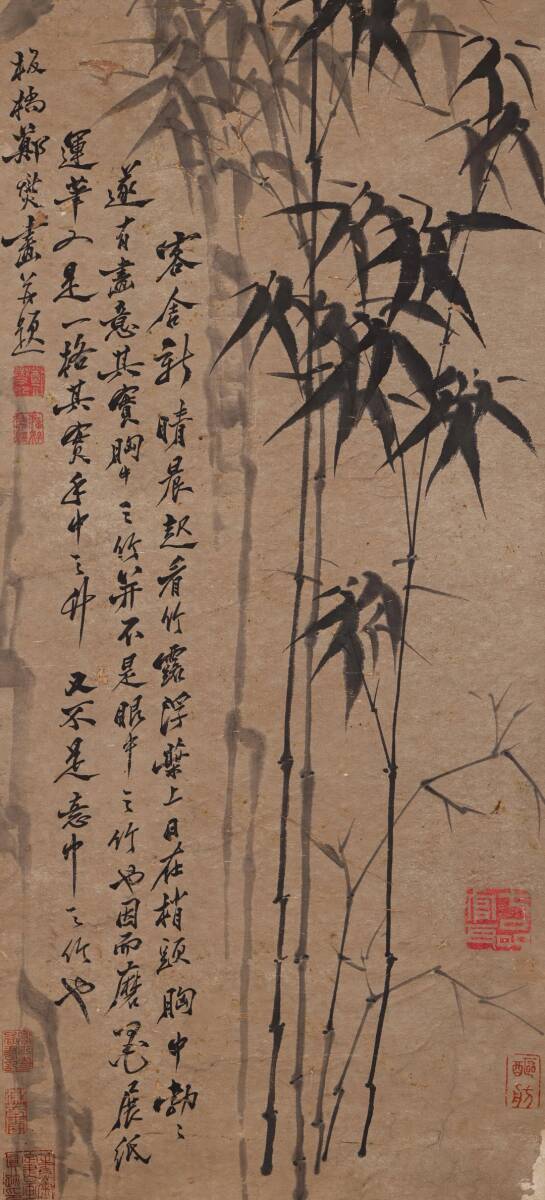 客舍新晴晨起看竹露浮葉上日在梢頭胸中勃〻
遂有畫意其實胸中之竹並不是眼中之竹也因而磨墨展紙
運筆又是一格其實手中之竹又不是意中之竹也
板橋鄭燮畫并題